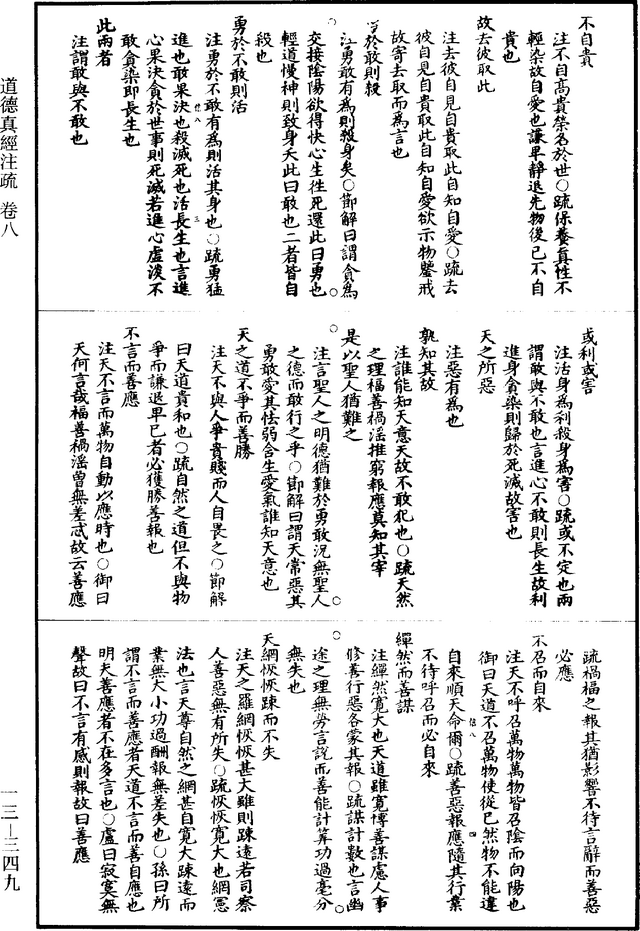 道德真經注疏　卷八
一三—三四九
不自貴
注不自高貴榮名於世○疏保養真性不
輕染故自愛也謙卑靜退先物後己不自
貴也
故去彼取此
注去彼自見自貴取此自知自愛○疏去
彼自見自貴取此自知自愛欲示物鑒戒
故寄去取而為言也
勇於敢則殺
注勇敢有為則殺身矣○節解曰謂貪為
交接陰陽欲得快心生往死還此曰勇也
輕道慢神則致身夭此曰敢也二者皆自
殺也
勇於不敢則活
注勇於不敢有為則活其身也○疏勇猛
進也敢果決也殺滅死也活長生也言進
心果決貪於世事則死滅若進心虛淡不
敢貪染即長生也
此兩者
注謂敢與不敢也
或利或害
注活身為利殺身為害○疏或不定也兩
謂敢與不敢也言進心不敢則長生故利
進身貪染則歸於死滅故害也
天之所惡
注惡有為也
孰知其故
注誰能知天意天故不敢犯也○疏天然
之理福善禍淫推窮報應莫知其宰
是以聖人猶難之
注言聖人之明德猶難於勇敢況無聖人
之德而敢行之乎○節解曰謂天常惡其
勇敢愛其怯弱合生愛氣誰知天意也
天之道不爭而善勝
注天不與人爭貴賤而人自畏之○節解
曰天道貴和也○疏自然之道但不與物
爭而謙退卑己者必獲勝善報也
不言而善應
注天不言而萬物自動以應時也○御曰
天何言哉福善禍淫曾無差忒故云善應
疏禍福之報其猶影響不待言辭而善惡
必應
不召而自來
注天不呼召萬物萬物皆召陰而向陽也
御曰天道不召萬物使從己然物不能違
自來順天命爾○疏善惡報應隨其行業
不待呼召而必自來
繟然而善謀
注繟然寬大也天道雖寬博善謀慮人事
修善行惡各蒙其報○疏謀計數也言幽
途之理無勞言說而善能計算功過毫分
無失也
天網恢恢踈而不失
注天之羅網恢恢甚大雖則踈遠若司察
人善惡無有所失○疏恢恢寬大也網憲
法也言天尊自然之網甚自寬大踈遠而
業無大小功過酬報無差失也○孫曰所
謂不言而善應者天道不言而善自應也
明夫善應者不在多言也○盧曰寂寞無
聲故曰不言有感則報故曰善應